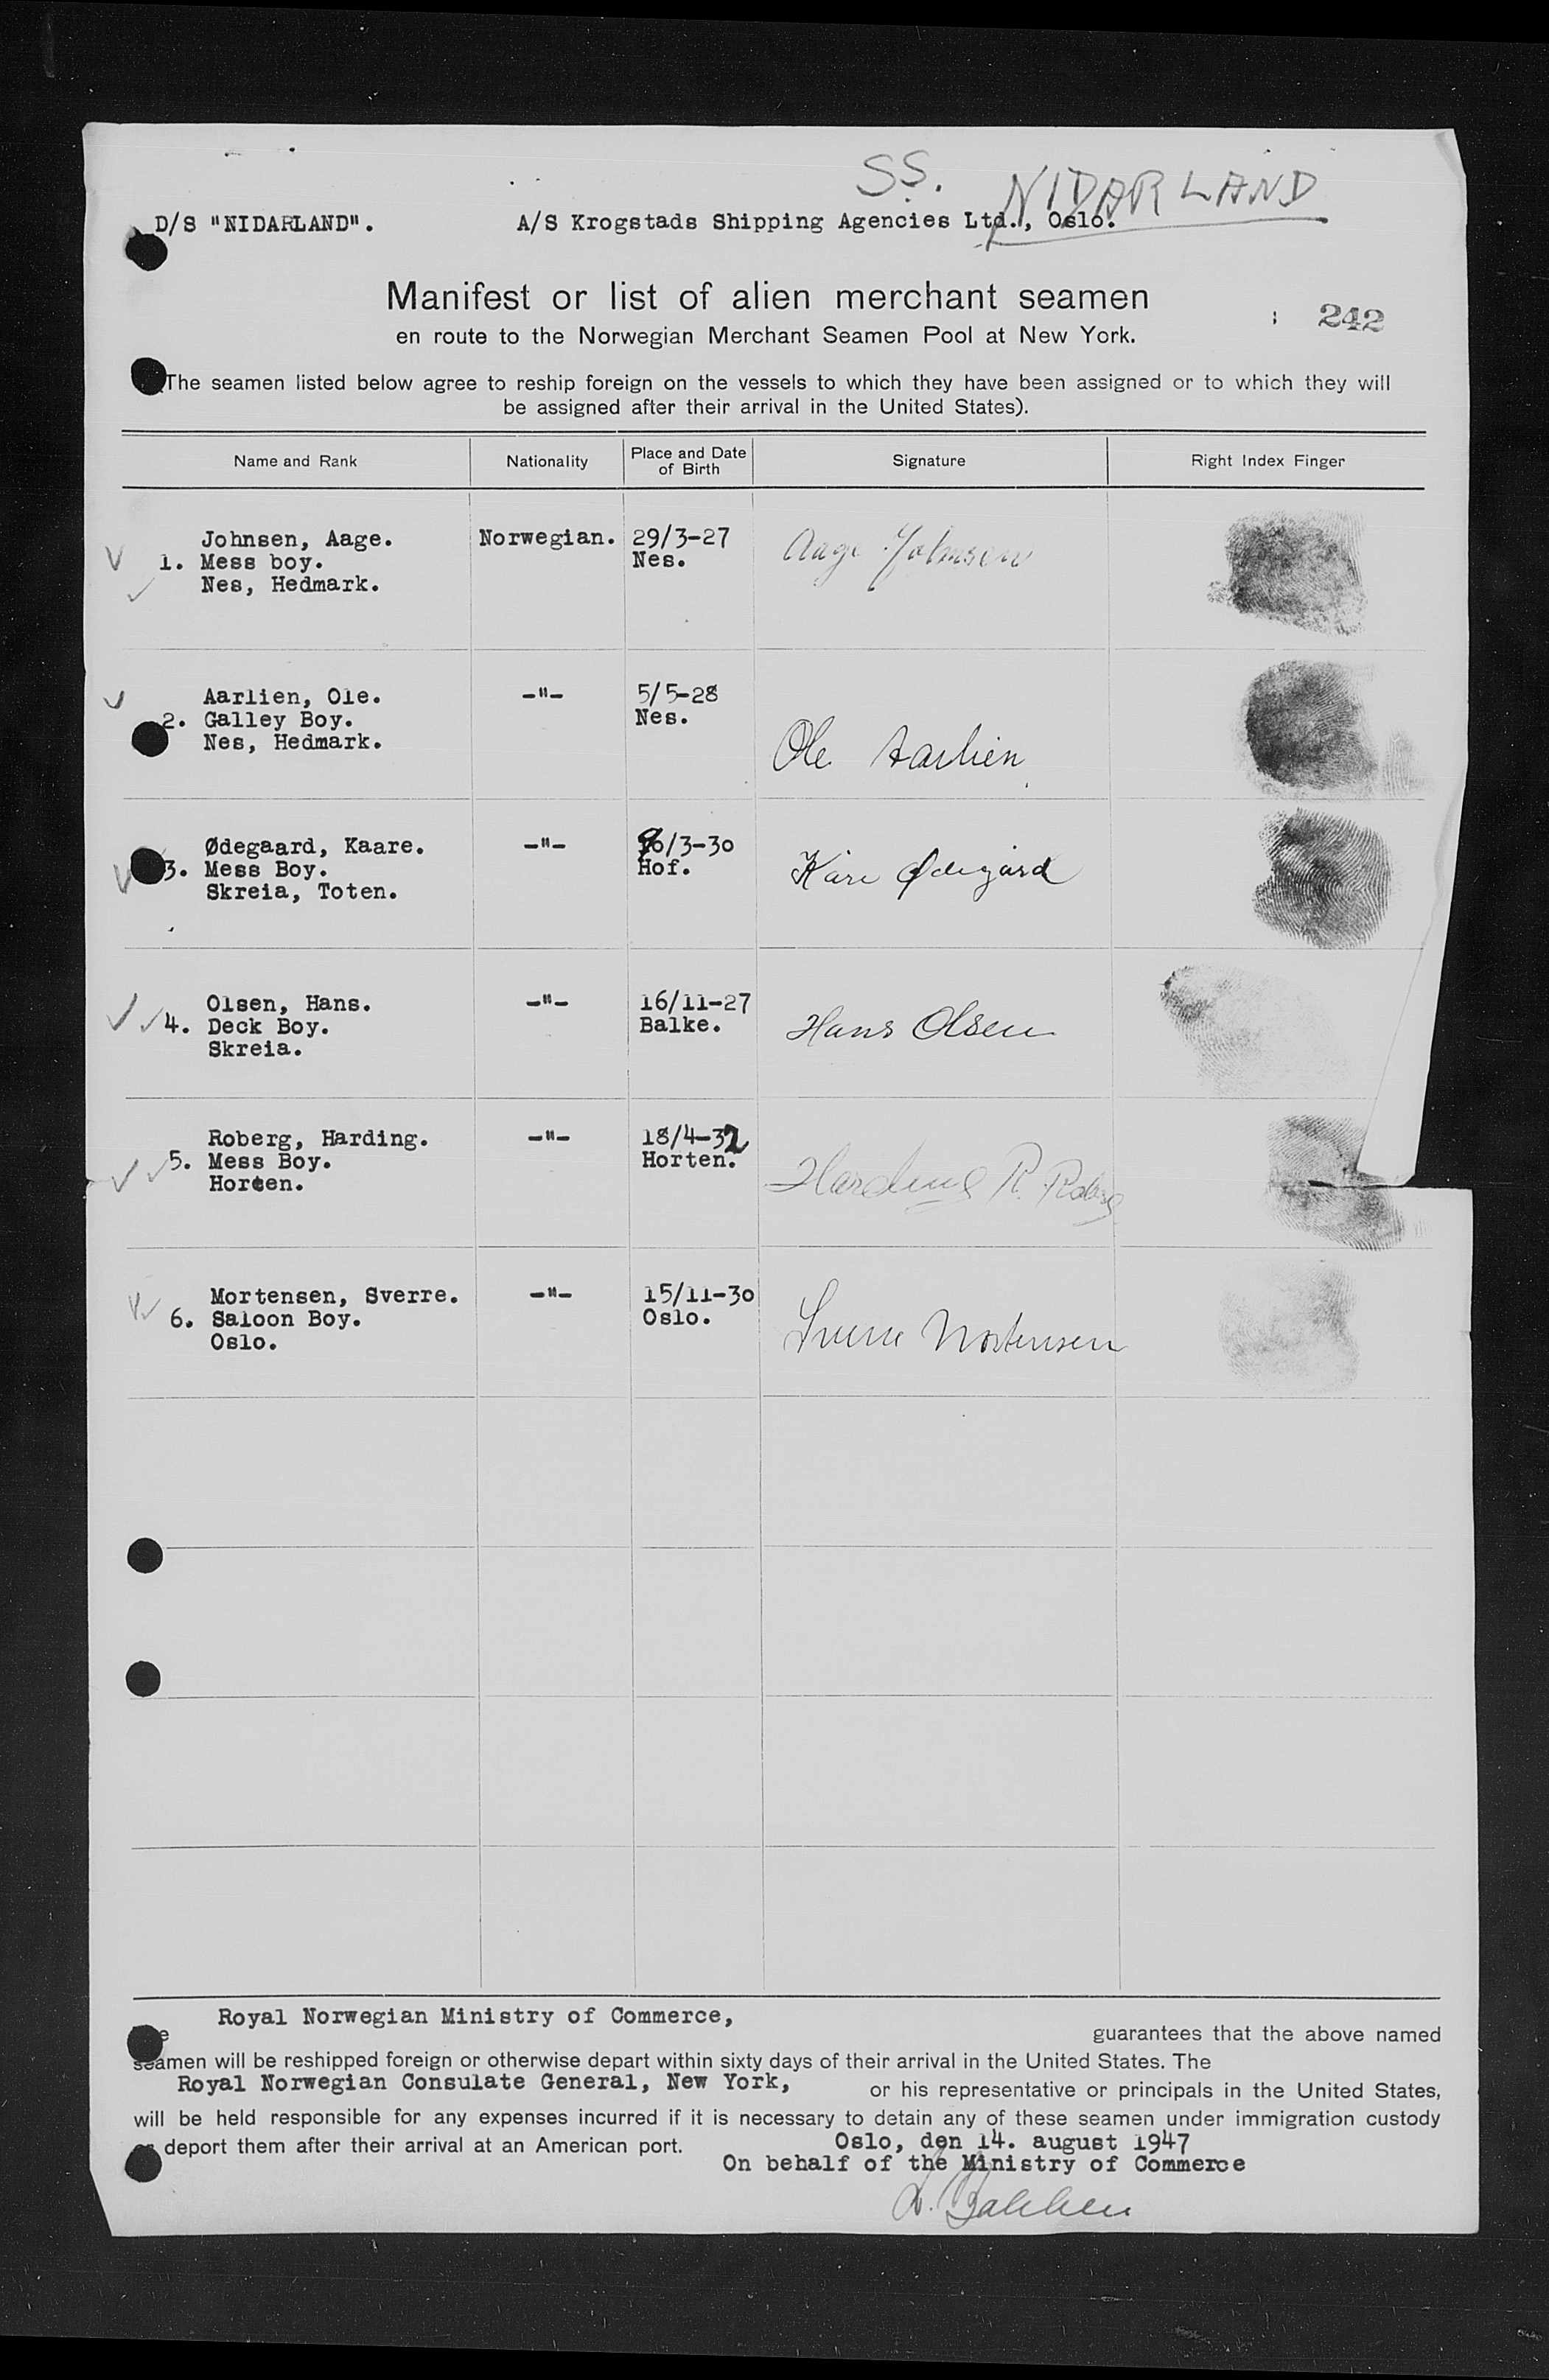 SS. NIDARLAND
D/S "NIDARLAND". A/S Krogstads Shipping Agencies Ltd., Oslo.
Manifest or list of alien merchant seamen
242
en route to the Norwegian Merchant Seamen Pool at New York.
The seamen listed below agree to reship foreign on the vessels to which they have been assigned or to which they will
be assigned after their arrival in the United States).
Name and Rank Nationality Place and Date of Birth Signature Right Index Finger
Johnsen, Aage. Norwegian. 29/3-27 Aage Johnsen
1. Mess boy. Nes.
Nes, Hedmark.
Aarlien, Ole. -"- 5/5-28
2. Galley Boy. Nes.
Nes, Hedmark. Ole Aarlien
Ødegaard, Kaare. -"- /3-30
3. Mess Boy. Hof. Kåre Ødegård
Skreia, Toten.
Olsen, Hans. -"- 16/11-27
4. Deck Boy. Balke. Hans Olsen
Skreia.
Roberg, Harding. -"- 18/4-32
5. Mess Boy. Horten. Harding R. Roberg
Horten.
Mortensen, Sverre. -"- 15/11-30
6. Saloon Boy. Oslo. Sverre Mortensen
Oslo.
Royal Norwegian Ministry of Commerce,
guarantees that the above named
seamen will be reshipped foreign or otherwise depart within sixty days of their arrival in the United States. The
Royal Norwegian Consulate General, New York, or his representative or principals in the United States,
will be held responsible for any expenses incurred if it is necessary to detain any of these seamen under immigration custody
deport them after their arrival at an American port. Oslo, den 14. august 1947
On behalf of the Ministry of Commerce
Bakken